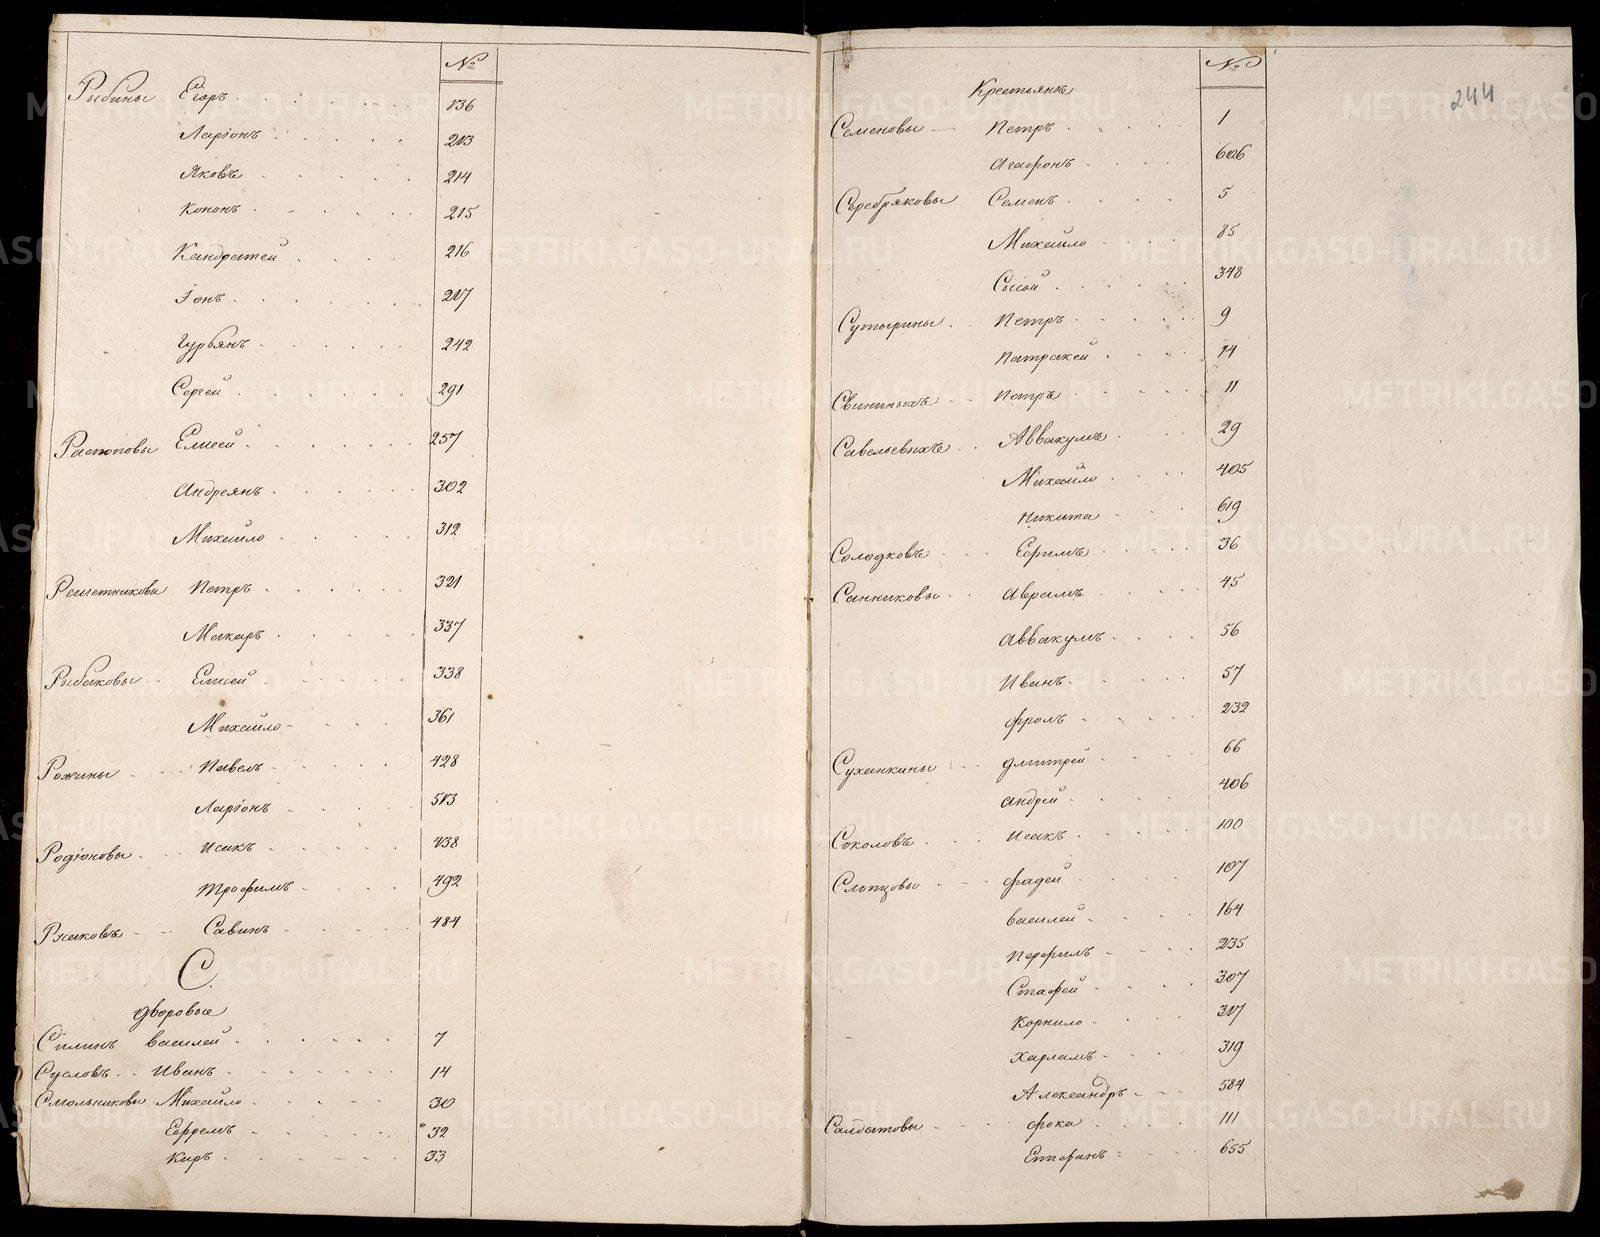 №
Рыбины Егоръ 136
Ларіонъ 213
Яковъ 214
Кононъ 215
Кандратей 216
Іонъ 217
Гурьянъ 242
Сергей 291
Растоповы Елисей 257
Андреянъ 302
Михайло 312
Решетниковы Петръ 321
Макаръ 337
Рыбаковы Елисей 338
Михайло 361
Рожины Павелъ 428
Ларіонъ 513
Родіоновы Исакъ 438
Трофимъ 492
Савинъ 484
С.
дворовые
Силинъ василей 7
Сусловъ Иванъ 14
Смольниковы Михайло 30
Ефремъ 32
Киръ 33
№
244
Крестьянъ
Семеновы Петръ 1
Агафонъ 606
Серебряковы Семенъ 5
Михайло 85
Сысой 348
Сутырины Петръ 9
Патракей 14
Свининыхъ Петръ 11
Савельевыхъ Аввакумъ 29
Михайло 405
Никита 619
Солодковъ Ефимъ 36
Санниковы Аврамъ 45
Аввакумъ 56
Иванъ 57
Фролъ 232
Суханкины Дмитрей 66
Андрей 406
Соколовъ Исакъ 100
Слепцовы Фадей 107
василей 164
Перфилъ 235
Стафей 307
Корнило 317
Харламъ 319
Александръ 584
Салдатовы Фока 111
Епифанъ 655
METRIKI.GASO-URAL.RU